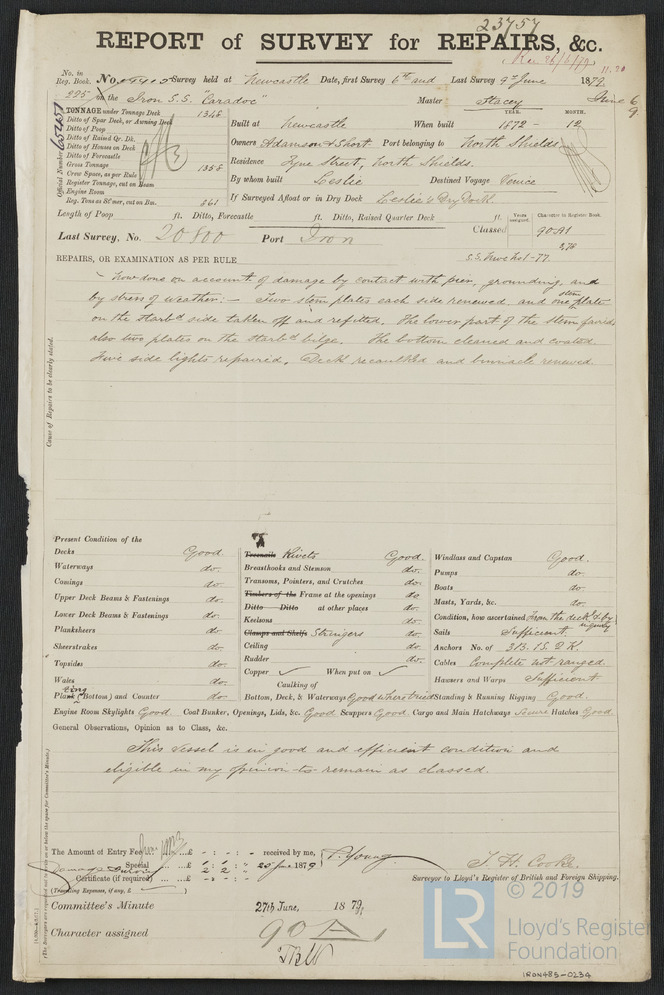 23757
REPORT of SURVEY for REPAIRS, &c.
Rec 26/6/79
11.20
No. in Reg. Book.
No. Survey held at Newcastle Date, first Survey 6th and Last Survey 9th June 1879
295 on the Iron S.S. "Caradoc" Master Stacey
June 6
9
TONNAGE under Tonnage Deck 1348
Ditto of Spar Deck, or Awning Deck
Ditto of Poop
Ditto of Raised Qr. Dk.
Ditto of Houses on Deck
Ditto of Forecastle
Gross Tonnage 1358
Crew Space, as per Rule
Register Tonnage, cut on Beam
Engine Room
Reg. Tons as St'mer, cut on Bm. 861
Official Number
YEAR. MONTH.
Built at Newcastle When built 1872 - 12
Owners Adamson & Short Port belonging to North Shields
Residence Tyne Street, North Shields.
By whom built Leslie Destined Voyage Venice
If Surveyed Afloat or in Dry Dock Leslie's Dry Dock
Length of Poop ft. Ditto, Forecastle ft. Ditto, Raised Quarter Deck ft.
Years assigned. Character in Register Book.
Last Survey, No. 20800 Port Iron Classed 90A1
3,78
S.S. Nwc No1-77.
REPAIRS, OR EXAMINATION AS PER RULE
Now done on account of damage by contact with pier, grounding, and
by stress of weather:— Two stem plates each side renewed, and one stem plate
on the starbd side taken off and refitted. The lower part of the stem faired
also two plates on the starbd bilge. The bottom cleaned and coated
Five side lights repaired. Deck recaulked and binnacle renewed.
Cause of Repairs to be clearly stated.
Present Condition of the
Decks Good.
Waterways do.
Comings do.
Upper Deck Beams & Fastenings do.
Lower Deck Beams & Fastenings do.
Planksheers do.
Sheerstrakes do.
Topsides do.
Wales do.
Plating (Bottom) and Counter do.
Treenails Rivets Good.
Breasthooks and Stemson do.
Transoms, Pointers, and Crutches do.
Timbers of the Frame at the openings do.
Ditto Ditto at other places do.
Keelsons do.
Clamps and Shelfs Stringers do.
Ceiling do.
Rudder do.
Copper ✓ When put on ✓
Caulking of
Bottom, Deck, & Waterways Good where tried
Windlass and Capstan Good.
Pumps do.
Boats do.
Masts, Yards, &c. do.
Condition, how ascertained From the deck & by
Sails Sufficient.
Anchors No. of 3B. 1S. 2K.
Cables Complete not ranged
Hawsers and Warps Sufficient
Standing & Running Rigging Good.
Engine Room Skylights Good Coal Bunker, Openings, Lids, &c. Good Scuppers Good Cargo and Main Hatchways Secure Hatches Good
General Observations, Opinion as to Class, &c.
This Vessel is in good and efficient condition and
eligible in my opinion to remain as classed.
The Amount of Entry Fee £ : : received by me,
Special £ 1 : 1 :
Damage Survey 2 : 2 : 25 June 1879 T. Young
Certificate (if required) £ - : - : -
(Travelling Expenses, if any, £ )
T. H. Cooke.
Surveyor to Lloyd's Register of British and Foreign Shipping.
Committee's Minute 27th June, 1879.
Character assigned 90 A1
© 2019
LR
Lloyd's Register
Foundation
IRON485-0234